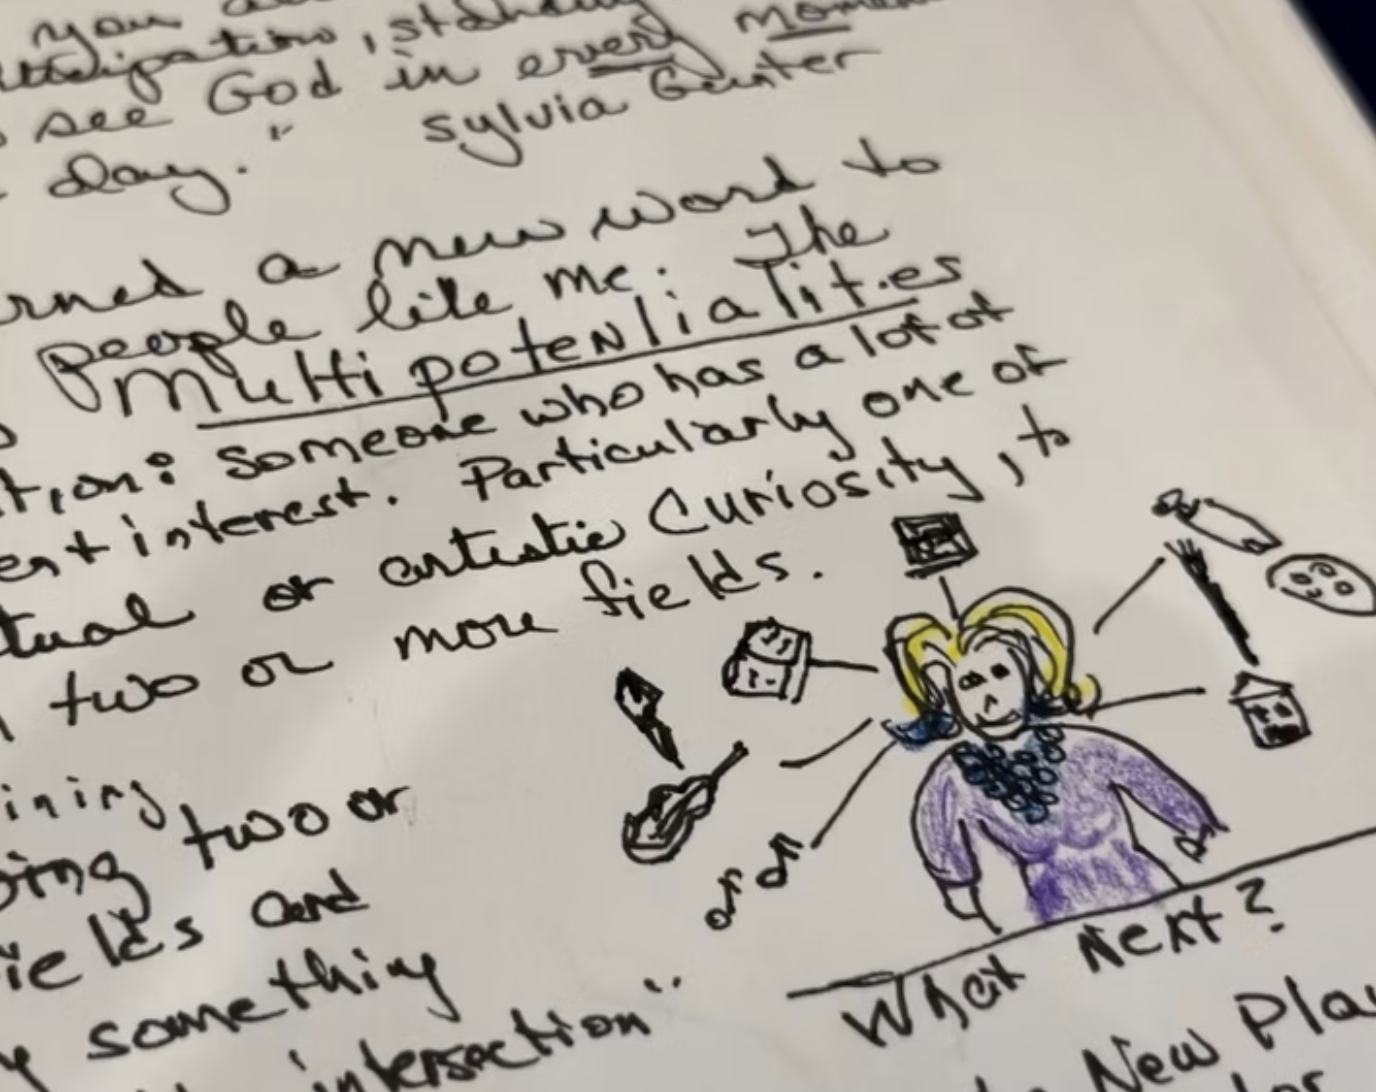 you
, standing
see God in every moment
day." Sylvia Gunter
rned a new word to
people like me: The
Multipotentialities
tion: Someone who has a lot of
ent interest. Particularly one of
tual or artistic Curiosity, to
two or more fields.
ining
oing two or
ields and
something
intersection"
What Next?
New Pla